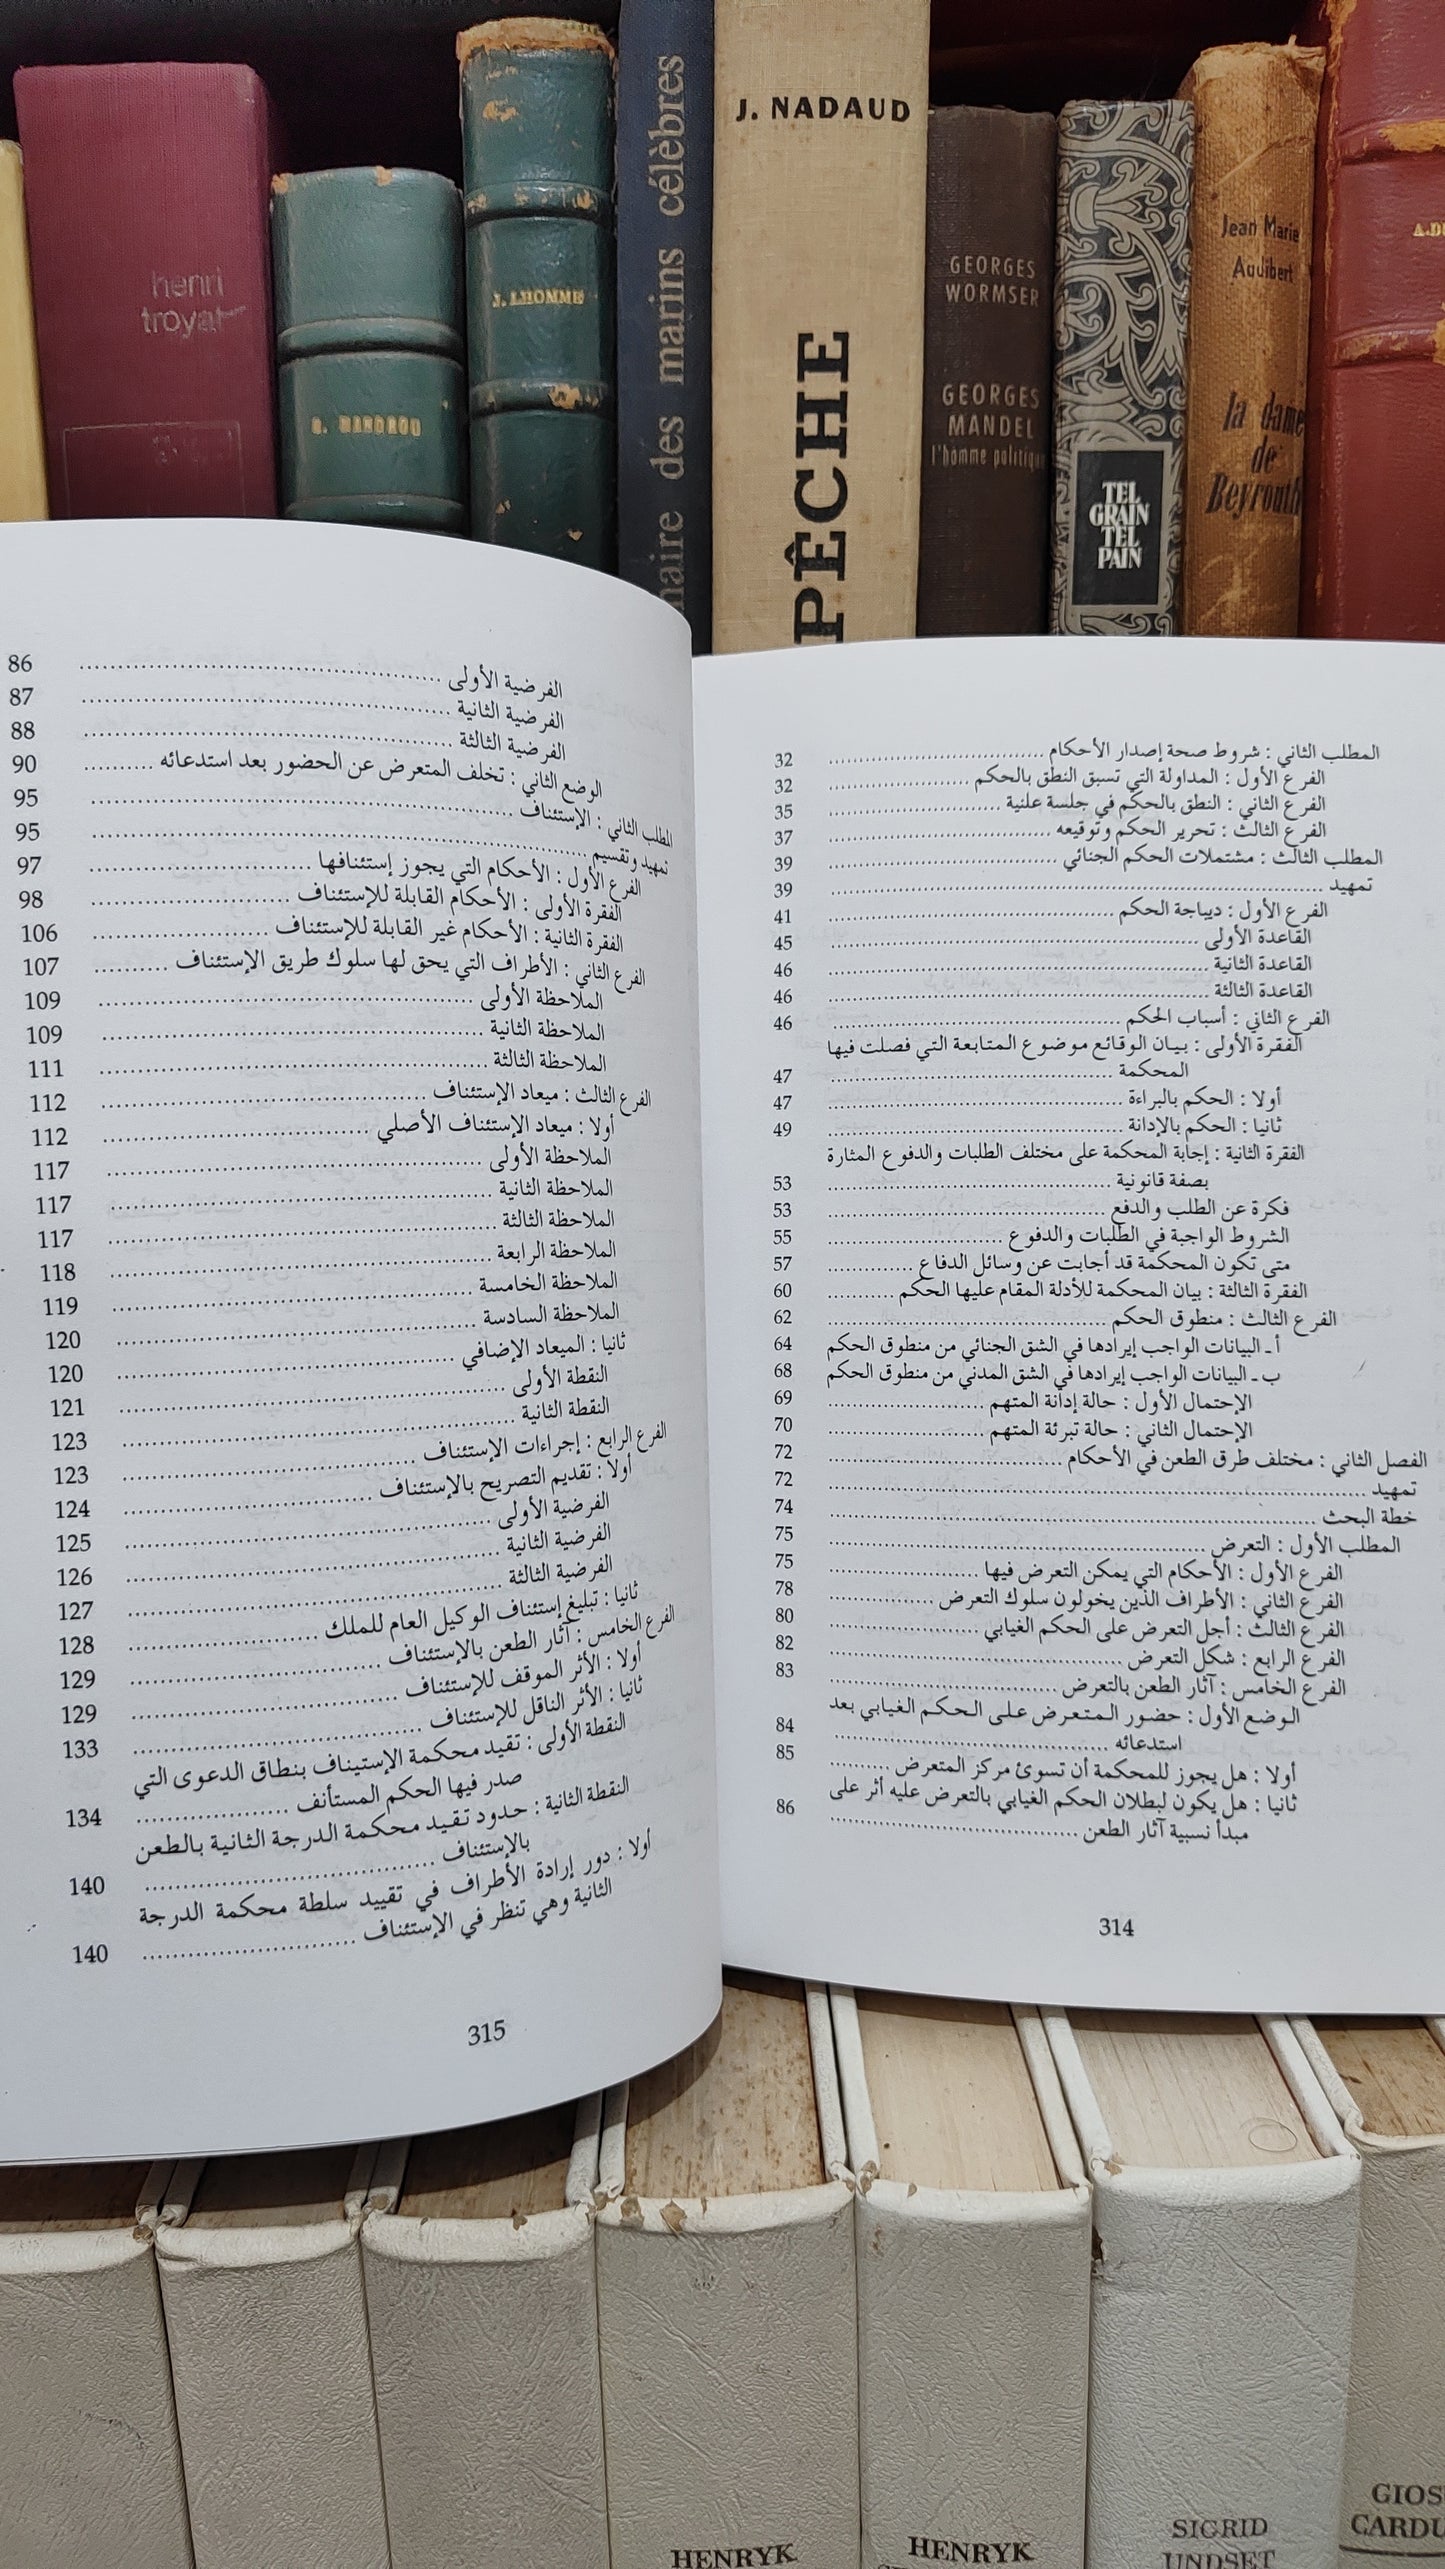 henri
troyat
J. LHOMME
naire des marins célèbres
J. NADAUD
PÊCHE
GEORGES
WORMSER
GEORGES
MANDEL
l'homme politique
TEL
GRAIN
TEL
PAIN
Jean Marie
Audibert
la dame
de
Beyrouth
المطلب الثاني : شروط صحة إصدار الأحكام 32
الفرع الأول : المداولة التي تسبق النطق بالحكم 32
الفرع الثاني : النطق بالحكم في جلسة علنية 35
الفرع الثالث : تحرير الحكم وتوقيعه 37
المطلب الثالث : مشتملات الحكم الجنائي 39
تمهيد 39
الفرع الأول : ديباجة الحكم 41
القاعدة الأولى 45
القاعدة الثانية 46
القاعدة الثالثة 46
الفرع الثاني : أسباب الحكم 46
الفقرة الأولى : بيان الوقائع موضوع المتابعة التي فصلت فيها
المحكمة 47
أولا : الحكم بالبراءة 47
ثانيا : الحكم بالإدانة 49
الفقرة الثانية : إجابة المحكمة على مختلف الطلبات والدفوع المثارة
بصفة قانونية 53
فكرة عن الطلب والدفع 53
الشروط الواجبة في الطلبات والدفوع 55
متى تكون المحكمة قد أجابت عن وسائل الدفاع 57
الفقرة الثالثة : بيان المحكمة للأدلة المقام عليها الحكم 60
الفرع الثالث : منطوق الحكم 62
أ ـ البيانات الواجب إيرادها في الشق الجنائي من منطوق الحكم 64
ب ـ البيانات الواجب إيرادها في الشق المدني من منطوق الحكم 68
الإحتمال الأول : حالة إدانة المتهم 69
الإحتمال الثاني : حالة تبرئة المتهم 70
الفصل الثاني : مختلف طرق الطعن في الأحكام 72
تمهيد 72
خطة البحث 74
المطلب الأول : التعرض 75
الفرع الأول : الأحكام التي يمكن التعرض فيها 75
الفرع الثاني : الأطراف الذين يخولون سلوك التعرض 78
الفرع الثالث : أجل التعرض على الحكم الغيابي 80
الفرع الرابع : شكل التعرض 82
الفرع الخامس : آثار الطعن بالتعرض 83
الوضع الأول : حضور المتعرض على الحكم الغيابي بعد
استدعائه 84
أولا : هل يجوز للمحكمة أن تسوئ مركز المتعرض 85
ثانيا : هل يكون لبطلان الحكم الغيابي بالتعرض عليه أثر على
مبدأ نسبية آثار الطعن 86
314
الفرضية الأولى 86
الفرضية الثانية 87
الفرضية الثالثة 88
الوضع الثاني : تخلف المتعرض عن الحضور بعد استدعائه 90
المطلب الثاني : الإستئناف 95
تمهيد وتقسيم 95
الفرع الأول : الأحكام التي يجوز إستئنافها 97
الفقرة الأولى : الأحكام القابلة للإستئناف 98
الفقرة الثانية : الأحكام غير القابلة للإستئناف 106
الفرع الثاني : الأطراف التي يحق لها سلوك طريق الإستئناف 107
الملاحظة الأولى 109
الملاحظة الثانية 109
الملاحظة الثالثة 111
الفرع الثالث : ميعاد الإستئناف 112
أولا : ميعاد الإستئناف الأصلي 112
الملاحظة الأولى 117
الملاحظة الثانية 117
الملاحظة الثالثة 117
الملاحظة الرابعة 118
الملاحظة الخامسة 119
الملاحظة السادسة 120
ثانيا : الميعاد الإضافي 120
النقطة الأولى 121
النقطة الثانية 123
الفرع الرابع : إجراءات الإستئناف 123
أولا : تقديم التصريح بالإستئناف 124
الفرضية الأولى 125
الفرضية الثانية 126
الفرضية الثالثة 127
ثانيا : تبليغ إستئناف الوكيل العام للملك 128
الفرع الخامس : آثار الطعن بالإستئناف 129
أولا : الأثر الموقف للإستئناف 129
ثانيا : الأثر الناقل للإستئناف 133
النقطة الأولى : تقيد محكمة الإستيناف بنطاق الدعوى التي
صدر فيها الحكم المستأنف 134
النقطة الثانية : حدود تقيد محكمة الدرجة الثانية بالطعن
بالإستئناف 140
أولا : دور إرادة الأطراف في تقييد سلطة محكمة الدرجة
الثانية وهي تنظر في الإستئناف 140
315
HENRYK
HENRYK
SIGRID
UNDSET
GIOS
CARDU